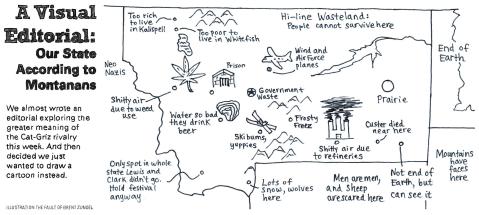 A Visual
Editorial:
Our State
According to
Montanans
We almost wrote an
editorial exploring the
greater meaning of
the Cat-Griz rivalry
this week. And then
decided we just
wanted to draw a
cartoon instead.
ILLUSTRATION THE FAULT OF BRENT ZUNDEL
Too rich
to live
in Kalispell
Too poor to
live in Whitefish
Hi-line Wasteland:
People cannot survive here
Wind and
Air Force
planes
End of
Earth
Neo
Nazis
Prison
Shitty air
due to weed
use
Government
Waste
Prairie
Water so bad
they drink
beer
Frosty
Freez
Ski bums,
yuppies
Custer died
near here
Shitty air due
to refineries
Mountains
have
faces
here
Only spot in whole
state Lewis and
Clark didn't go.
Hold festival
anyway
Lots of
snow, wolves
here
Men are men,
and Sheep
are scared here
Not end of
Earth, but
can see it